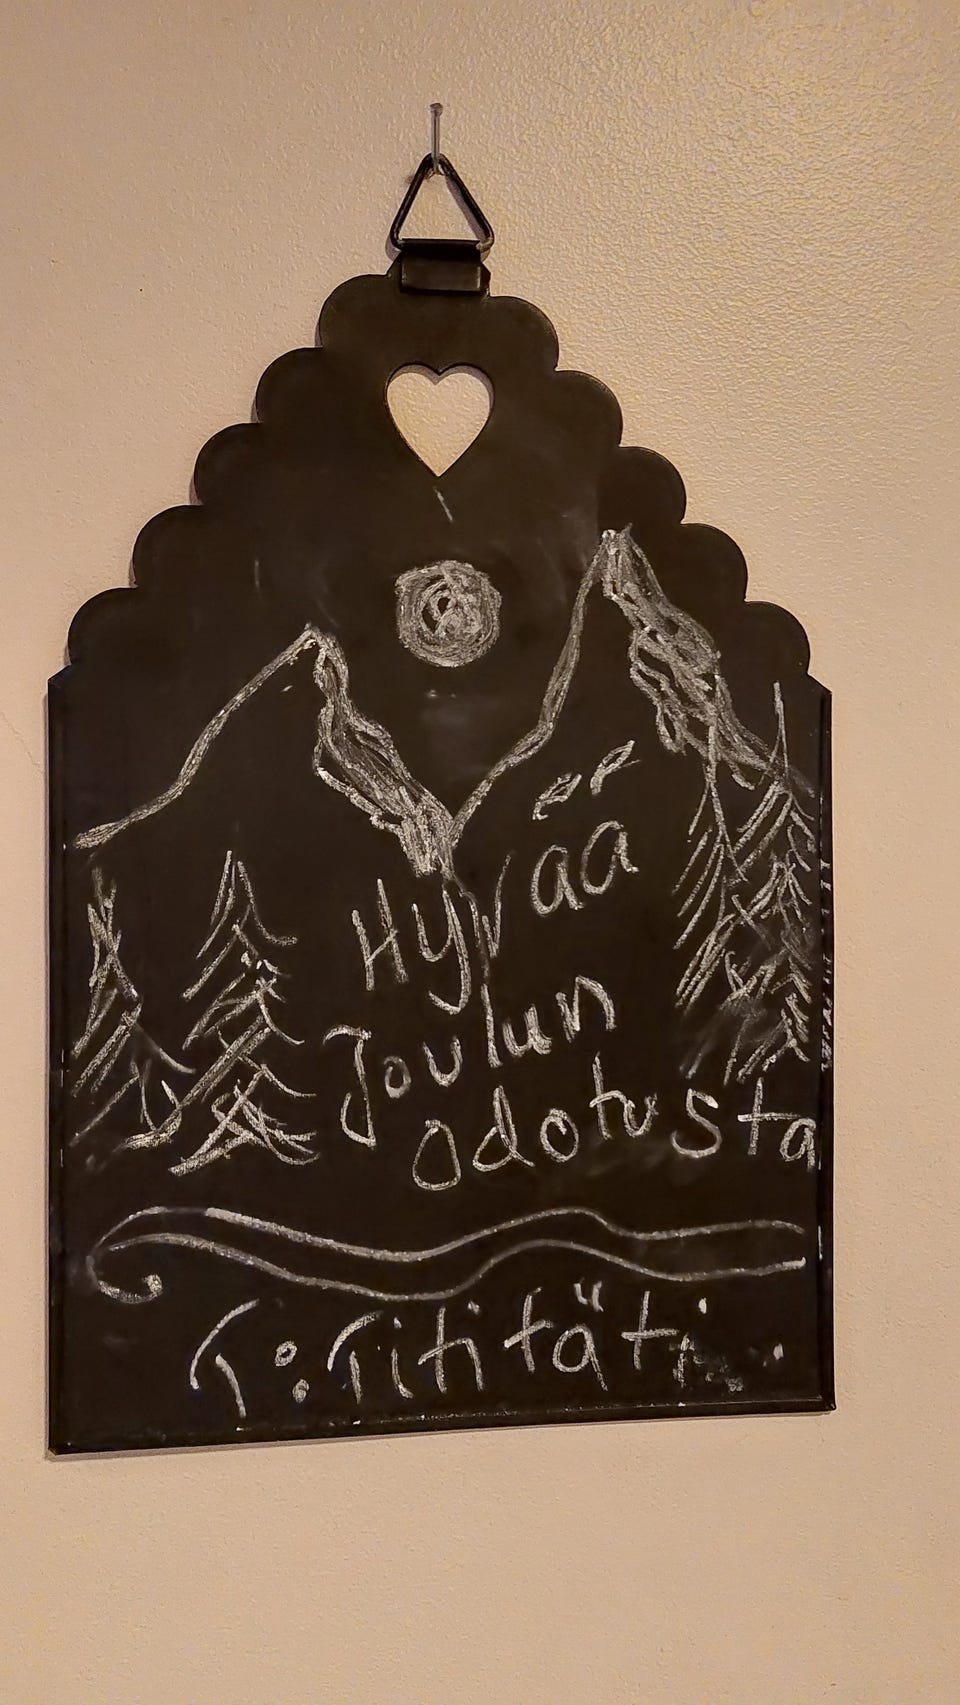 Hyvää
Joulun
odotusta
T: Tititäti